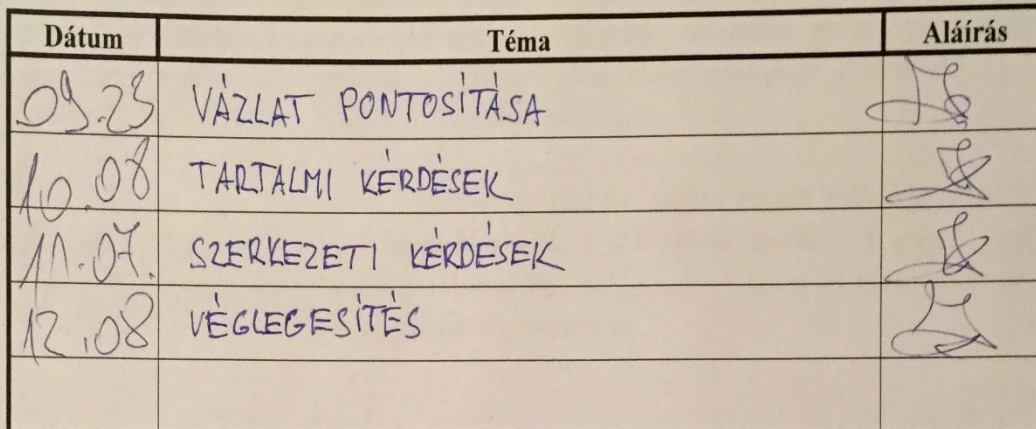 Dátum Téma Aláírás
09.23 VÁZLAT PONTOSÍTÁSA
10.08 TARTALMI KÉRDÉSEK
11.07. SZERKEZETI KÉRDÉSEK
12.08 VÉGLEGESÍTÉS